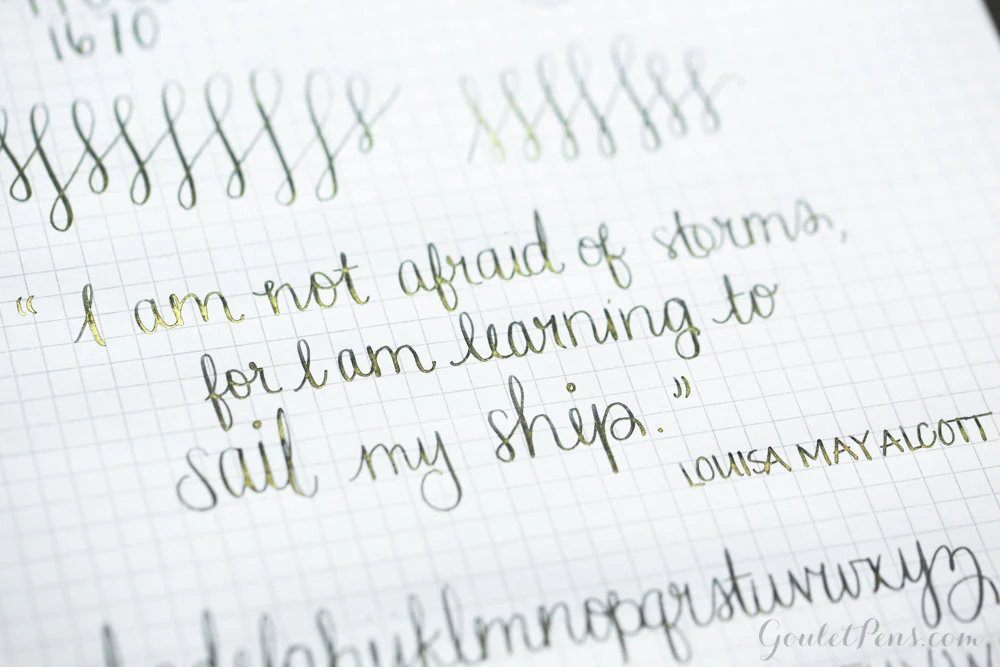 1670
“I am not afraid of storms,
for I am learning to
sail my ship.”
LOUISA MAY ALCOTT
hijklmnopqrstuvwxyz
GouletPens.com